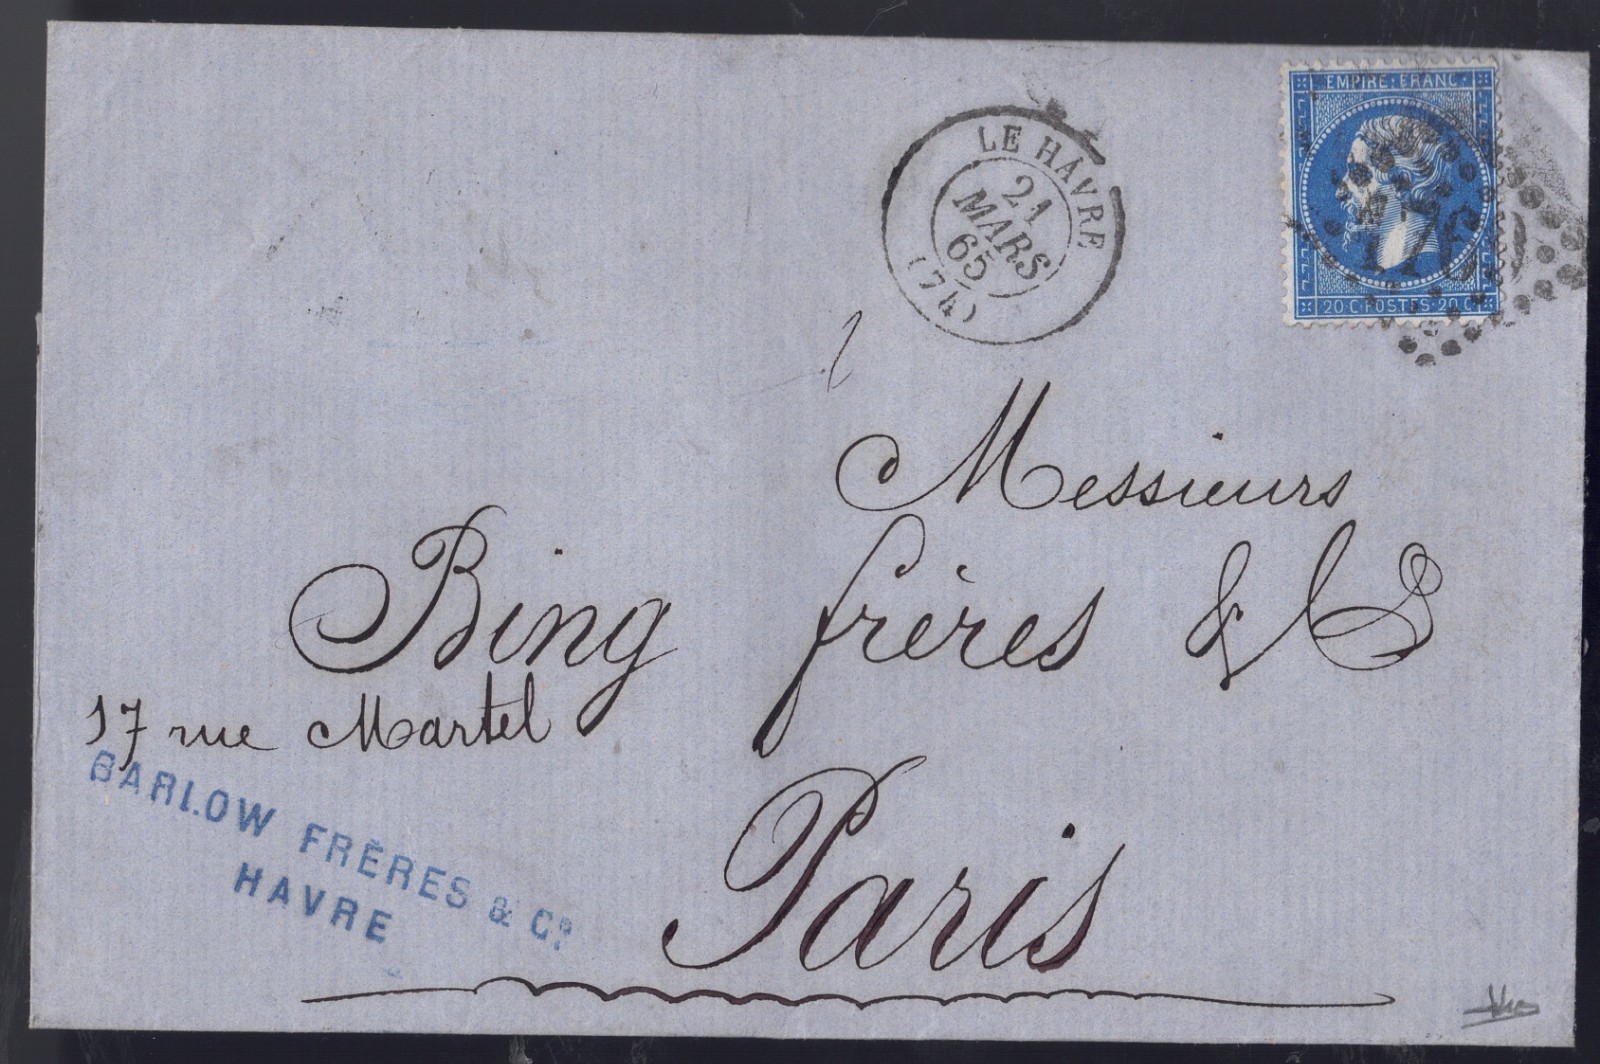 LE HAVRE
21
MARS
65
(74)
EMPIRE·FRANC·
1769
20·C·POSTES·20·C
Messieurs
Bing frères & Cie
17 rue Martel
BARLOW FRÈRES & Co.
HAVRE
Paris